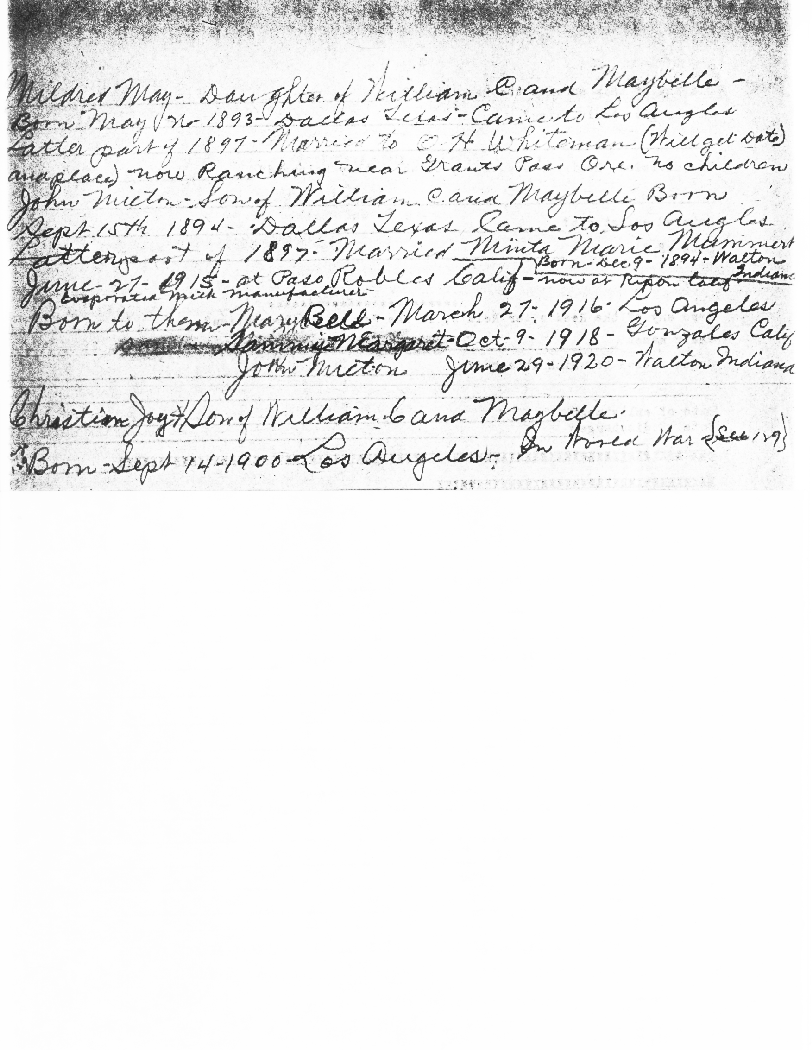 Mildred May - Daughter of William C. and Maybelle -
Born May 1893 - Dallas Texas - Came to Los Angles
Latter part of 1897 - Married to O H Whiteman (Will get Date)
and place) now Ranching near Grants Pass Ore. no children
John Milton - Son of William C and Maybelle Born
Sept 15th 1894 - Dallas Texas Came to Los Angles
Latter part of 1897 - Married Minta Marie Mummert
Born - Dec 9 - 1894 - Walton Indiana
June - 27 - 1915 - at Paso Robles Calif - now at Ripon Calif
Evaporated Milk manufacturer
Born to them - Mary Bell - March 27 - 1916 - Los Angeles
Margaret - Oct - 9 - 1918 - Gonzales Calif
John Milton June 29 - 1920 - Walton Indiana
Christian Joy Son of William C and Maybelle.
Born - Sept 14 - 1900 - Los Angeles - In World War